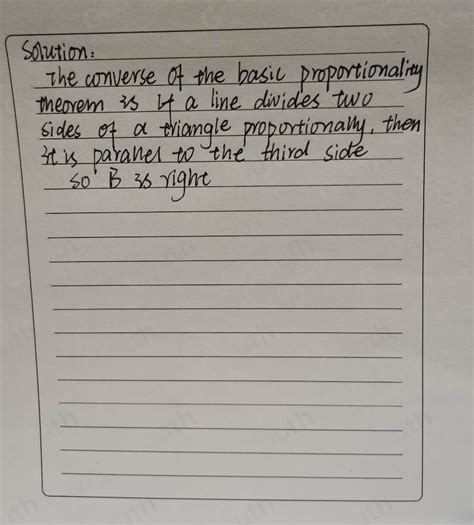 Solution:
The converse of the basic proportionality
theorem is If a line divides two
sides of a triangle proportionally, then
it is parallel to the third side
so B is right